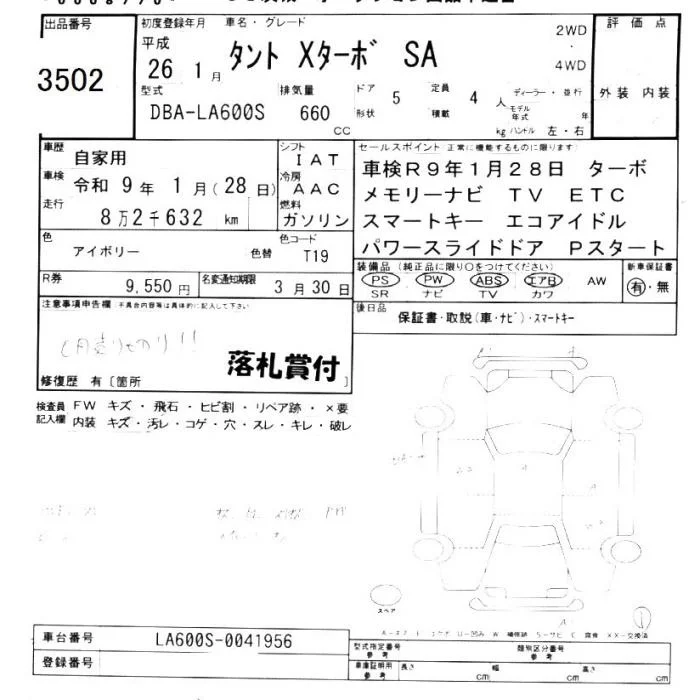 出品番号
3502
初度登録年月 車名・グレード
平成
26 1月 タント Xターボ SA
2WD
・
4WD
評価点
外装 内装
型式
DBA-LA600S
排気量
660
CC
ドア 5
形状
定員 4 人
積載 kg
ディーラー・並行
モデル年式 年
ハンドル 左・右
車歴 自家用
車検 令和 9年 1月(28日)
走行
8万2千632 km
シフト
IAT
冷房
AAC
燃料
ガソリン
セールスポイント(正常に機能するものに限ります)
車検R9年1月28日 ターボ
メモリーナビ TV ETC
スマートキー エコアイドル
パワースライドドア Pスタート
色
アイボリー
色替
色コード
T19
装備品(純正品に限り○をつけてください)
PS PW ABS エアB AW
SR ナビ TV カワ
新車保証書
有・無
R券 9,550円
名変通知期限 3月30日
後日品
保証書・取説(車・ナビ)・スマートキー
注意事項申告欄(不具合内容等は具体的に記入して下さい)
落札賞付
修復歴 有〔箇所 〕
検査員 FW キズ・飛石・ヒビ割・リペア跡・×要
記入欄 内装 キズ・汚レ・コゲ・穴・スレ・キレ・破レ
A
A
A
A
スペア
車台番号 LA600S-0041956
登録番号
型式指定番号
参考
類別区分番号
参考
車庫証明用
参考
長さ cm
幅 cm
高さ cm